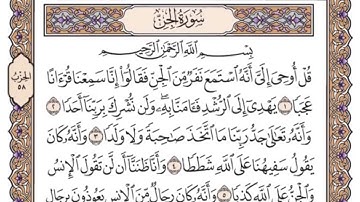 سُورَةُ الجِنِّ
بِسْمِ اللَّهِ الرَّحْمَٰنِ الرَّحِيمِ
قُلْ أُوحِيَ إِلَيَّ أَنَّهُ اسْتَمَعَ نَفَرٌ مِّنَ الْجِنِّ فَقَالُوا إِنَّا سَمِعْنَا قُرْءَانًا
عَجَبًا ١ يَهْدِي إِلَى الرُّشْدِ فَـَٔامَنَّا بِهِ وَلَن نُّشْرِكَ بِرَبِّنَا أَحَدًا ٢
وَأَنَّهُ تَعَالَىٰ جَدُّ رَبِّنَا مَا اتَّخَذَ صَاحِبَةً وَلَا وَلَدًا ٣ وَأَنَّهُ كَانَ
يَقُولُ سَفِيهُنَا عَلَى اللَّهِ شَطَطًا ٤ وَأَنَّا ظَنَنَّا أَن لَّن تَقُولَ الْإِنسُ
وَالْجِنُّ عَلَى اللَّهِ كَذِبًا ٥ وَأَنَّهُ كَانَ رِجَالٌ مِّنَ الْإِنسِ يَعُوذُونَ بِرِجَالٍ
الحِزْبُ
٥٨